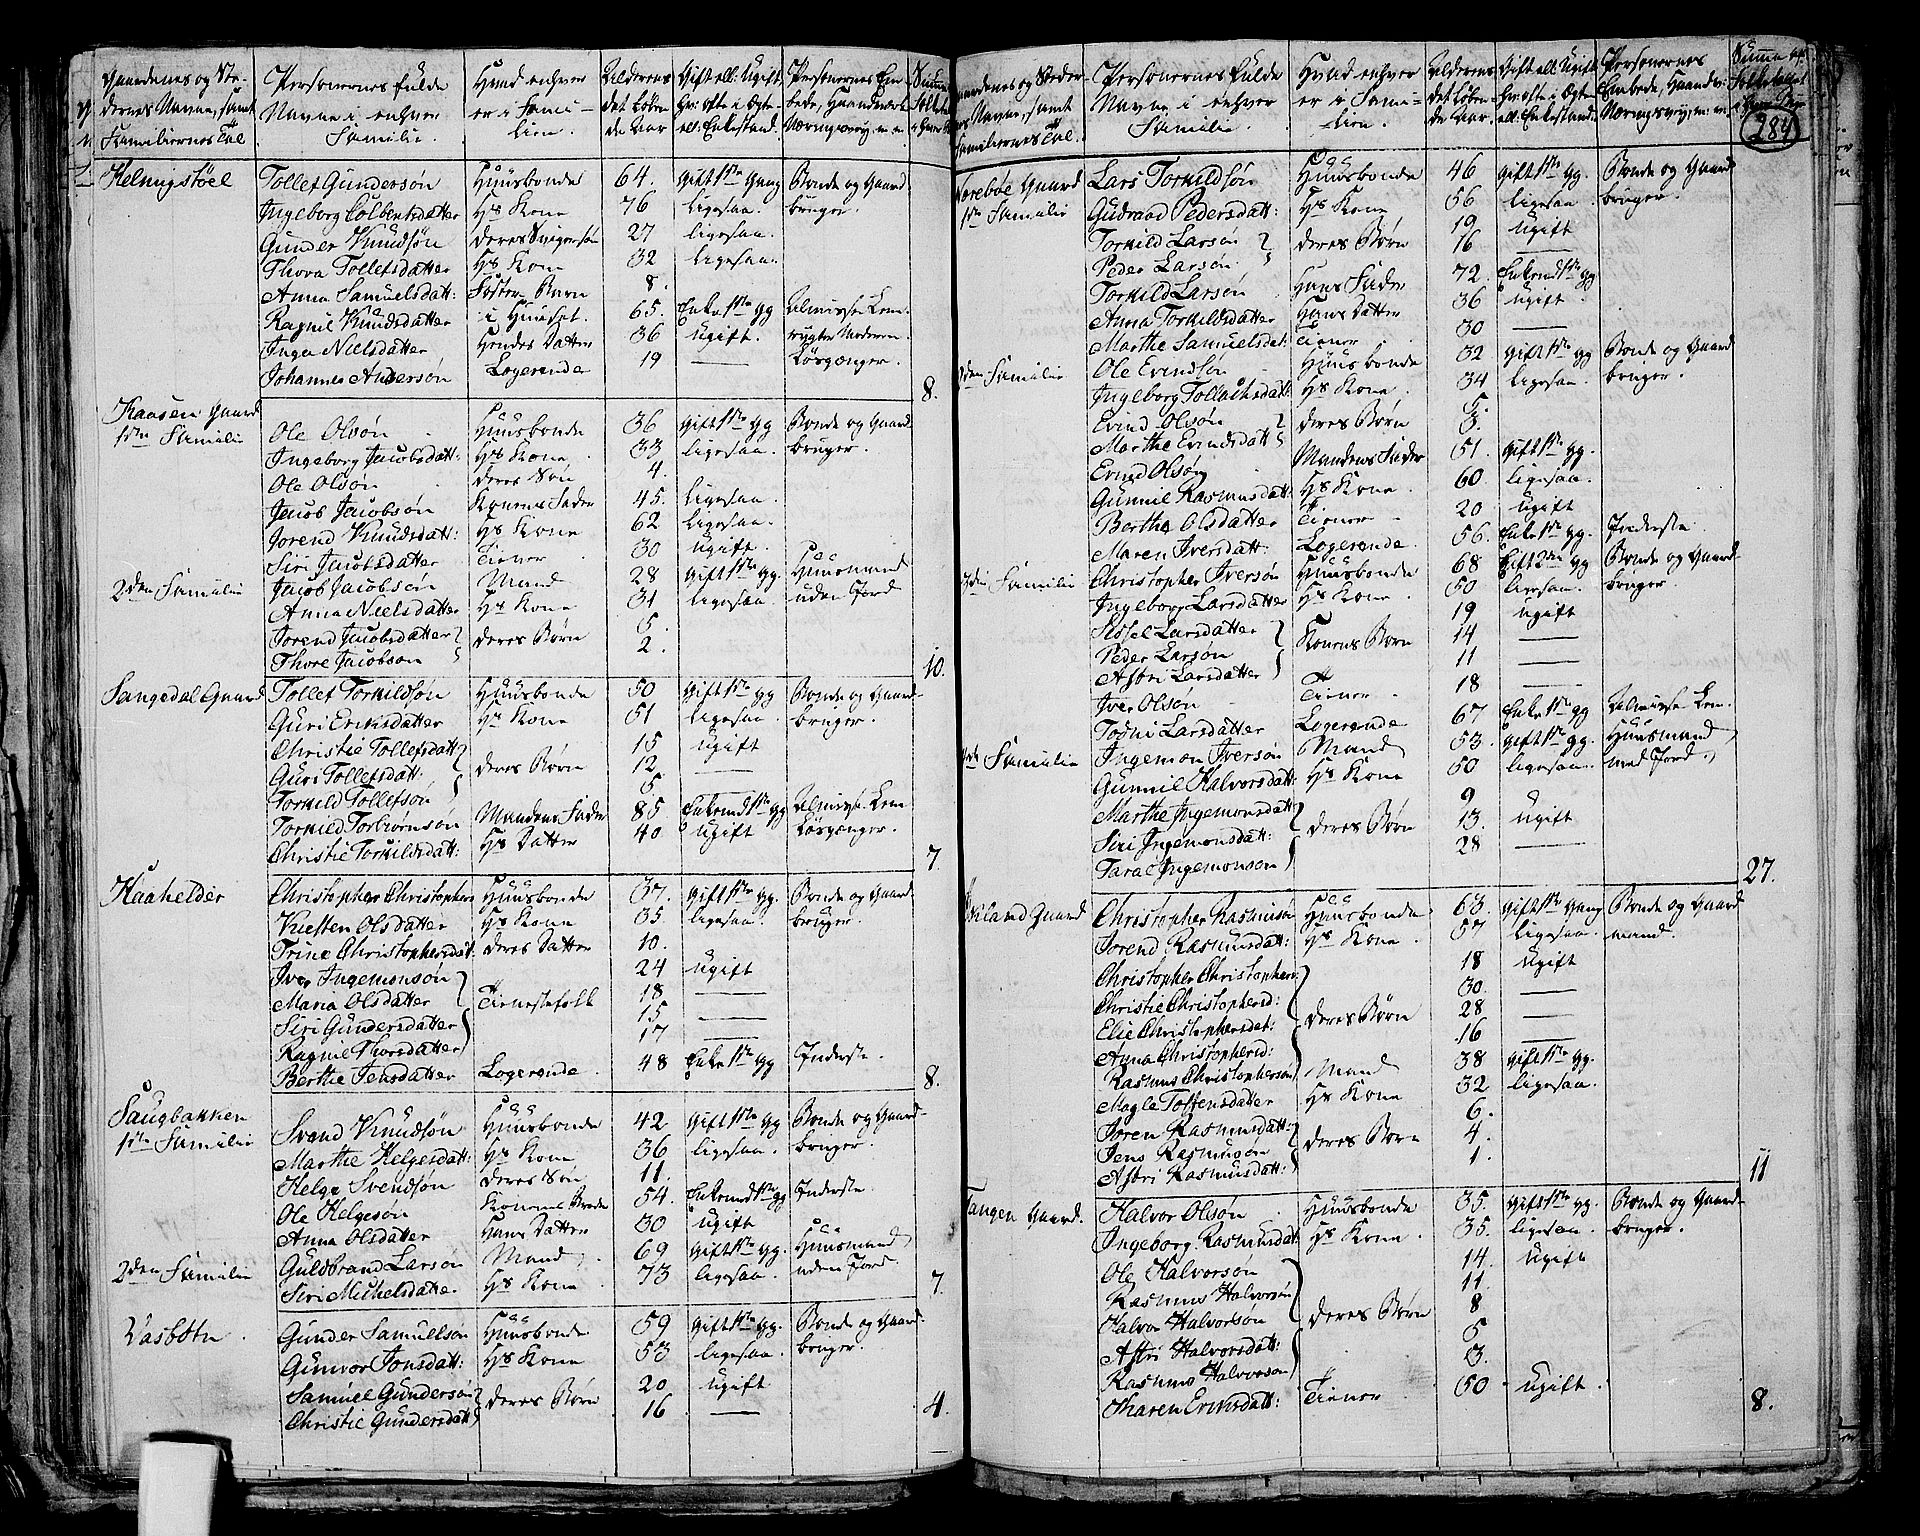 Gaardenes og Ste-
dernes Navne, samt
Familiernes Tal
Personernes fulde
Navne i enhver
Familie
Hvad enhver
er i Fami-
lien.
Alderens
det løben-
de Aar
Gift ell: Ugift
hvor ofte i Egte-
ell: Enkestand.
Personernes Em-
bede, Haandværk
Næringsvey m. m
Helmigstøel
Tollef Gundersøn Huusbonde 64. Gift 1ste Gang Bonde og Gaard
Ingeborg Colbentsdatter Hs Kone 76 ligesaa. bruger.
Gunder Knudsøn deres Svigersøn 27 ligesaa.
Thora Tollefsdatter Hs Kone 32 ligesaa.
Anna Samuelsdatt: Foster Barn 8.
Ragnil Knudsdatter i Huuset. 65. Enke 1ste gg Almisse Lem
Inger Nielsdatter Hendes Datter 36 ugift.
Johannes Andersøn Logerende 19 — Løsgænger.
8.
Kaasen Gaard
1ste Familie
Ole Olsøn Huusbonde 36 Gift 1ste gg Bonde og Gaard
Ingeborg Jacobsdatt: Hs Kone 33 ligesaa. bruger.
Ole Olsøn deres Søn 4.
Jacob Jacobsøn Konens Fader 45. ligesaa
Jorend Knudsdatt: Hs Kone 62 ligesaa.
Siri Jacobsdatter Tiener 30 ugift.
2den Familie Jacob Jacobsøn Mand 28 Gift 1ste gg. Huusmand
Anna Nielsdatter Hs Kone 31 ligesaa. uden Jord
Jorend Jacobsdatter deres Børn 5
Thore Jacobsøn 2.
10.
Sangedal Gaard Tollef Torkildsøn Huusbonde 50 Gift 1ste gg Bonde og Gaard-
Guri Eriksdatter Hs Kone 51 ligesaa bruger.
Christie Tollefsdatt deres Børn 15 ugift
Guri Tollefsdatt: 12 —
Torkild Tollefsøn 6
Torkild Torbiørnsøn Mandens Fader 85 Enkemd 1ste gg Almisse Lem
Christie Torkildsdatt: Hs Datter 40 ugift Løsgænger.
7.
Haahelder Christopher Christophers Huusbonde 37. Gift 1ste gg. Bonde og Gaard
Kiesten Olsdatter Hs Kone 35 ligesaa. bruger.
Trine Christophersdat: deres Datter 10.
Iver Ingemonsøn 24 ugift
Maria Olsdatter Tienestefolk 18 —
Siri Gundersdatter 15 —
Ragnil Thorsdatter 17 —
Berthe Jensdatter Logerende. 48 Enke 1ste gg Inderste.
8.
Saugbakken
1ste Familie
Svend Knudsøn Huusbonde 42 Gift 1ste gg Bonde og Gaard-
Marthe Helgesdatt: Hs Kone 36 ligesaa. bruger.
Helge Svendsøn deres Søn 11.
Ole Helgesøn Konens Brode 54. Enkemd 1ste gg Inderste.
Anna Olsdatter Hans Datter 30 ugift
2den Familie Guldbrand Larsøn Mand 69 Gift 1ste gg. Huusmand
Siri Michelsdatter. Hs Kone 73 ligesaa. uden Jord.
7.
Vasbotn. Gunder Samuelsøn Huusbonde 59 Gift 1ste gg. Bonde og Gaard-
Gunvor Jonsdatt: Hs Kone 53 ligesaa. bruger.
Samuel Gundersøn deres Børn 20 ugift
Christie Gundersdatt 16 —
4.
Gaardenes og Steder-
nes Navne, samt
Familiernes Tal
Personernes Fulde
Navne i enhver
Familie.
Hvad enhver
er i Fami-
lien.
Alderens
det løben-
de Aar.
Gift ell. Ugift
hvor ofte i Egte
ell. Enkestand.
Personernes
Embede, Haandv:
Næringsvey, m. m.
284
Norebøe Gaard
1ste Familie
Lars Torkildsøn Huusbonde 46 Gift 1ste gg. Bonde og Gaard
Gudraad Pedersdatt: Hs Kone 56 ligesaa. bruger.
Torkild Larsøn deres Børn 19 ugift
Peder Larsøn 16 —
Torkild Larsøn Hans Fader 72. Enkemd 1ste gg
Anna Torkildsdatter Hans Datter 36 ugift.
Marthe Samuelsdat: Tiener 30 —
2den Familie Ole Evindsøn Huusbonde 32 Gift 1ste gg Bonde og Gaard
Ingeborg Tollachsdatt: Hs Kone. 34 ligesaa. bruger.
Evind Olsøn deres Børn 5.
Marthe Evindsdatt 3.
Evind Olsøn Mandens Fader 51. Gift 1ste gg.
Gunnil Rasmusdatt: Hs Kone. 60. ligesaa.
Berthe Olsdatter Tiener 20 ugift
Maren Iversdatt: Logerende. 56. Enke 1ste gg. Inderste
3die Familie Christopher Iversøn Huusbonde 68 Gift 2den gg Bonde og Gaard-
Ingeborg Larsdatter Hs Kone. 50 ligesaa. bruger
Sissel Larsdatter Konens Børn 19 ugift
Peder Larsøn 14 —
Astri Larsdatter 11 —
Iver Olsøn Tiener 18 —
Todni Larsdatter Logerende 67 Enke 1ste gg Almisse Lem.
4de Familie Ingemon Iversøn Mand 53. Gift 1ste gg. Huusmand
Gunnil Halvorsdatt: Hs Kone 50 ligesaa. med Jord.
Marthe Ingemonsdatt deres Børn 9
Siri Ingemonsdatt: 13. ugift
Tarac Ingemonsøn 28 —
27.
Gaard Christopher Rasmusøn Huusbonde 63. Gift 1ste Gang Bonde og Gaard
Jorend Rasmusdatt: Hs Kone. 57 ligesaa. mand.
Christopher Christophers: 18 ugift
Christie Christophersd: 30. —
Elie Christophersdet: deres Børn 28 —
Anna Christophersd: 16 —
Rasmus Christophersøn Mand 38 Gift 1ste gg.
Magle Tostensdatter Hs Kone 32 ligesaa.
Soren Rasmusdatt: deres Børn 6.
Jens Rasmusøn 4.
Astri Rasmusdatt: 1.
11
Tangen Gaard. Halvor Olsøn Huusbonde 35. Gift 1ste gg. Bonde og Gaard-
Ingeborg Rasmusdat: Hs Kone. 35. ligesaa. bruger.
Ole Halvorsøn 14. ugift
Rasmus Halvorsøn 11.
Halvor Halvorsøn deres Børn 8
Astri Halvorsdatt: 5
Rasmus Halvorsøn 3.
Maren Eriksdatt: Tiener 50 ugift.
8.